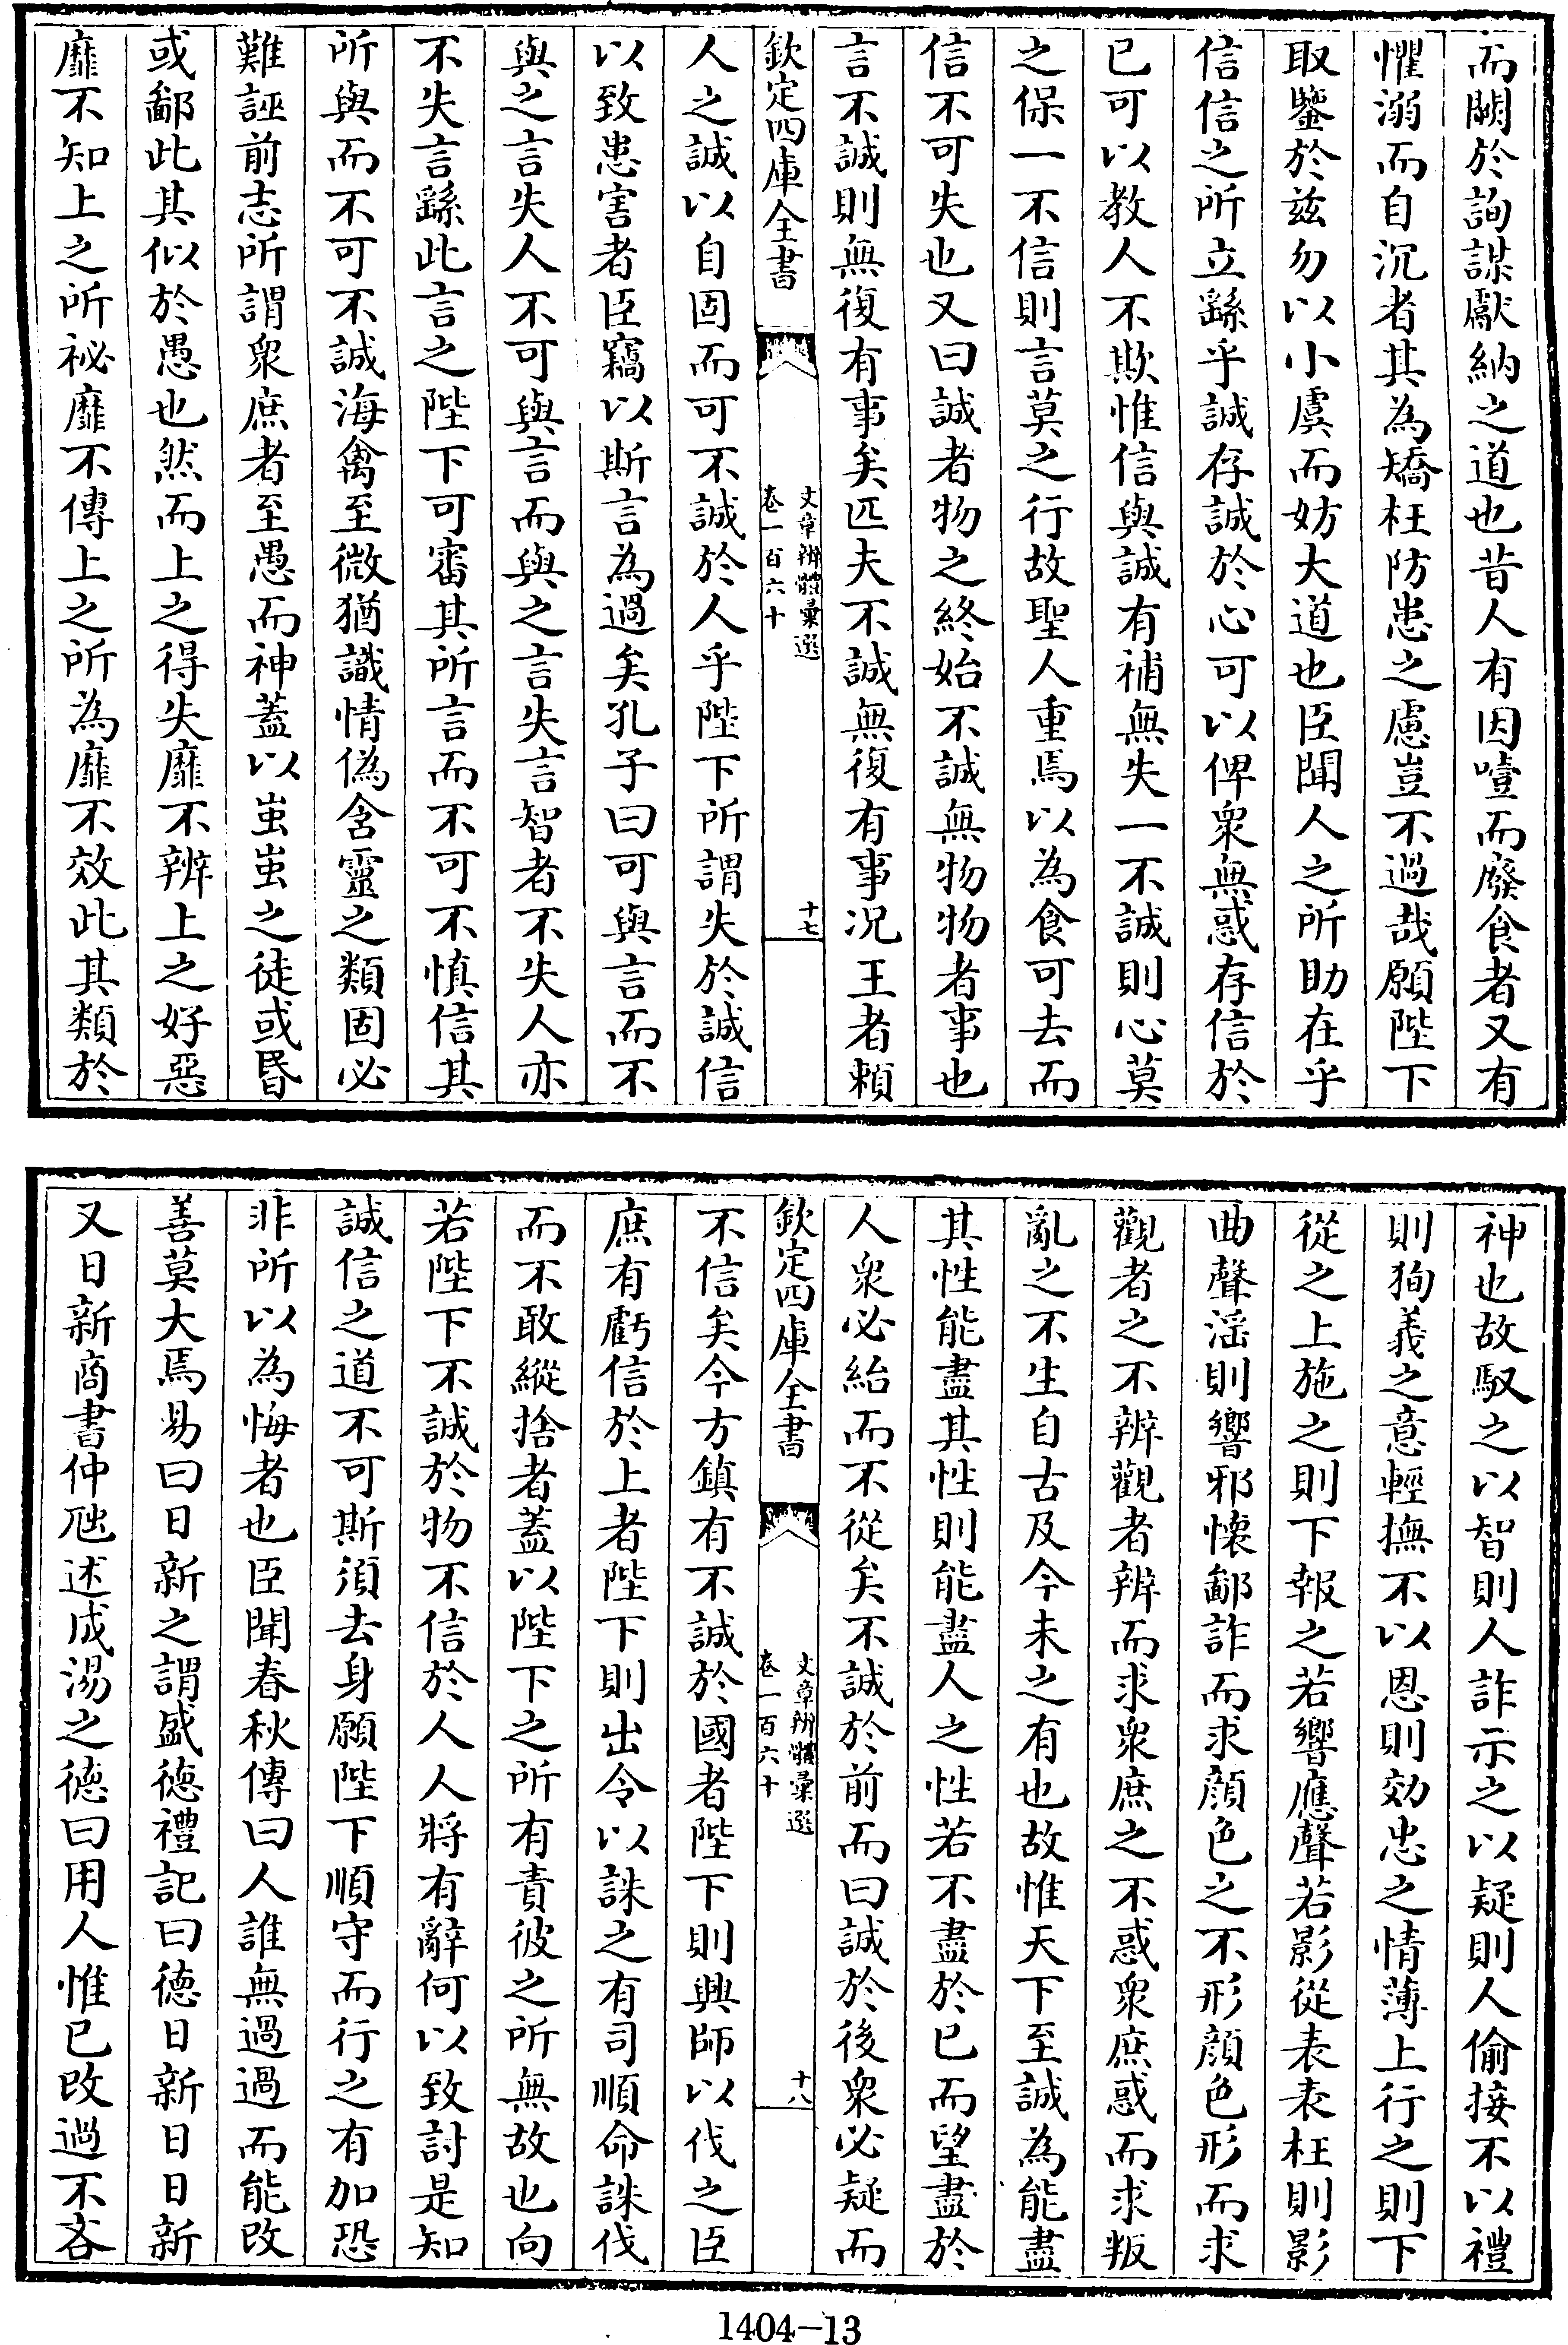 而闕於詢謀獻納之道也昔人有因噎而廢食者又有
懼溺而自沉者其為矯枉防患之慮豈不過哉願陛下
取鑒於兹勿以小虞而妨大道也臣聞人之所助在乎
信信之所立繇乎誠存誠於心可以俾衆無惑存信於
已可以教人不欺惟信與誠有補無失一不誠則心莫
之保一不信則言莫之行故聖人重焉以為食可去而
信不可失也又曰誠者物之終始不誠無物物者事也
言不誠則無復有事矣匹夫不誠無復有事况王者賴
欽定四庫全書
文章辨體彙選
卷一百六十
十七
人之誠以自固而可不誠於人乎陛下所謂失於誠信
以致患害者臣竊以斯言為過矣孔子曰可與言而不
與之言失人不可與言而與之言失言智者不失人亦
不失言繇此言之陛下可審其所言而不可不慎信其
所與而不可不誠海禽至微猶識情偽含靈之類固必
難誣前志所謂衆庶者至愚而神蓋以蚩蚩之徒或昬
或鄙此其似於愚也然而上之得失靡不辨上之好惡
靡不知上之所祕靡不傳上之所為靡不效此其類於
神也故馭之以智則人詐示之以疑則人偷接不以禮
則狥義之意輕撫不以恩則効忠之情薄上行之則下
從之上施之則下報之若響應聲若影從表表枉則影
曲聲滛則響邪懷鄙詐而求顔色之不形顔色形而求
觀者之不辨觀者辨而求衆庶之不惑衆庶惑而求叛
亂之不生自古及今未之有也故惟天下至誠為能盡
其性能盡其性則能盡人之性若不盡於已而望盡於
人衆必紿而不從矣不誠於前而曰誠於後衆必疑而
欽定四庫全書
文章辨體彙選
卷一百六十
十八
不信矣今方鎮有不誠於國者陛下則興師以伐之臣
庶有虧信於上者陛下則出令以誅之有司順命誅伐
而不敢縱捨者蓋以陛下之所有責彼之所無故也向
若陛下不誠於物不信於人人將有辭何以致討是知
誠信之道不可斯須去身願陛下順守而行之有加恐
非所以為悔者也臣聞春秋傳曰人誰無過過而能改
善莫大焉易曰日新之謂盛德禮記曰德日新日日新
又日新商書仲虺述成湯之德曰用人惟已改過不吝
1404-13